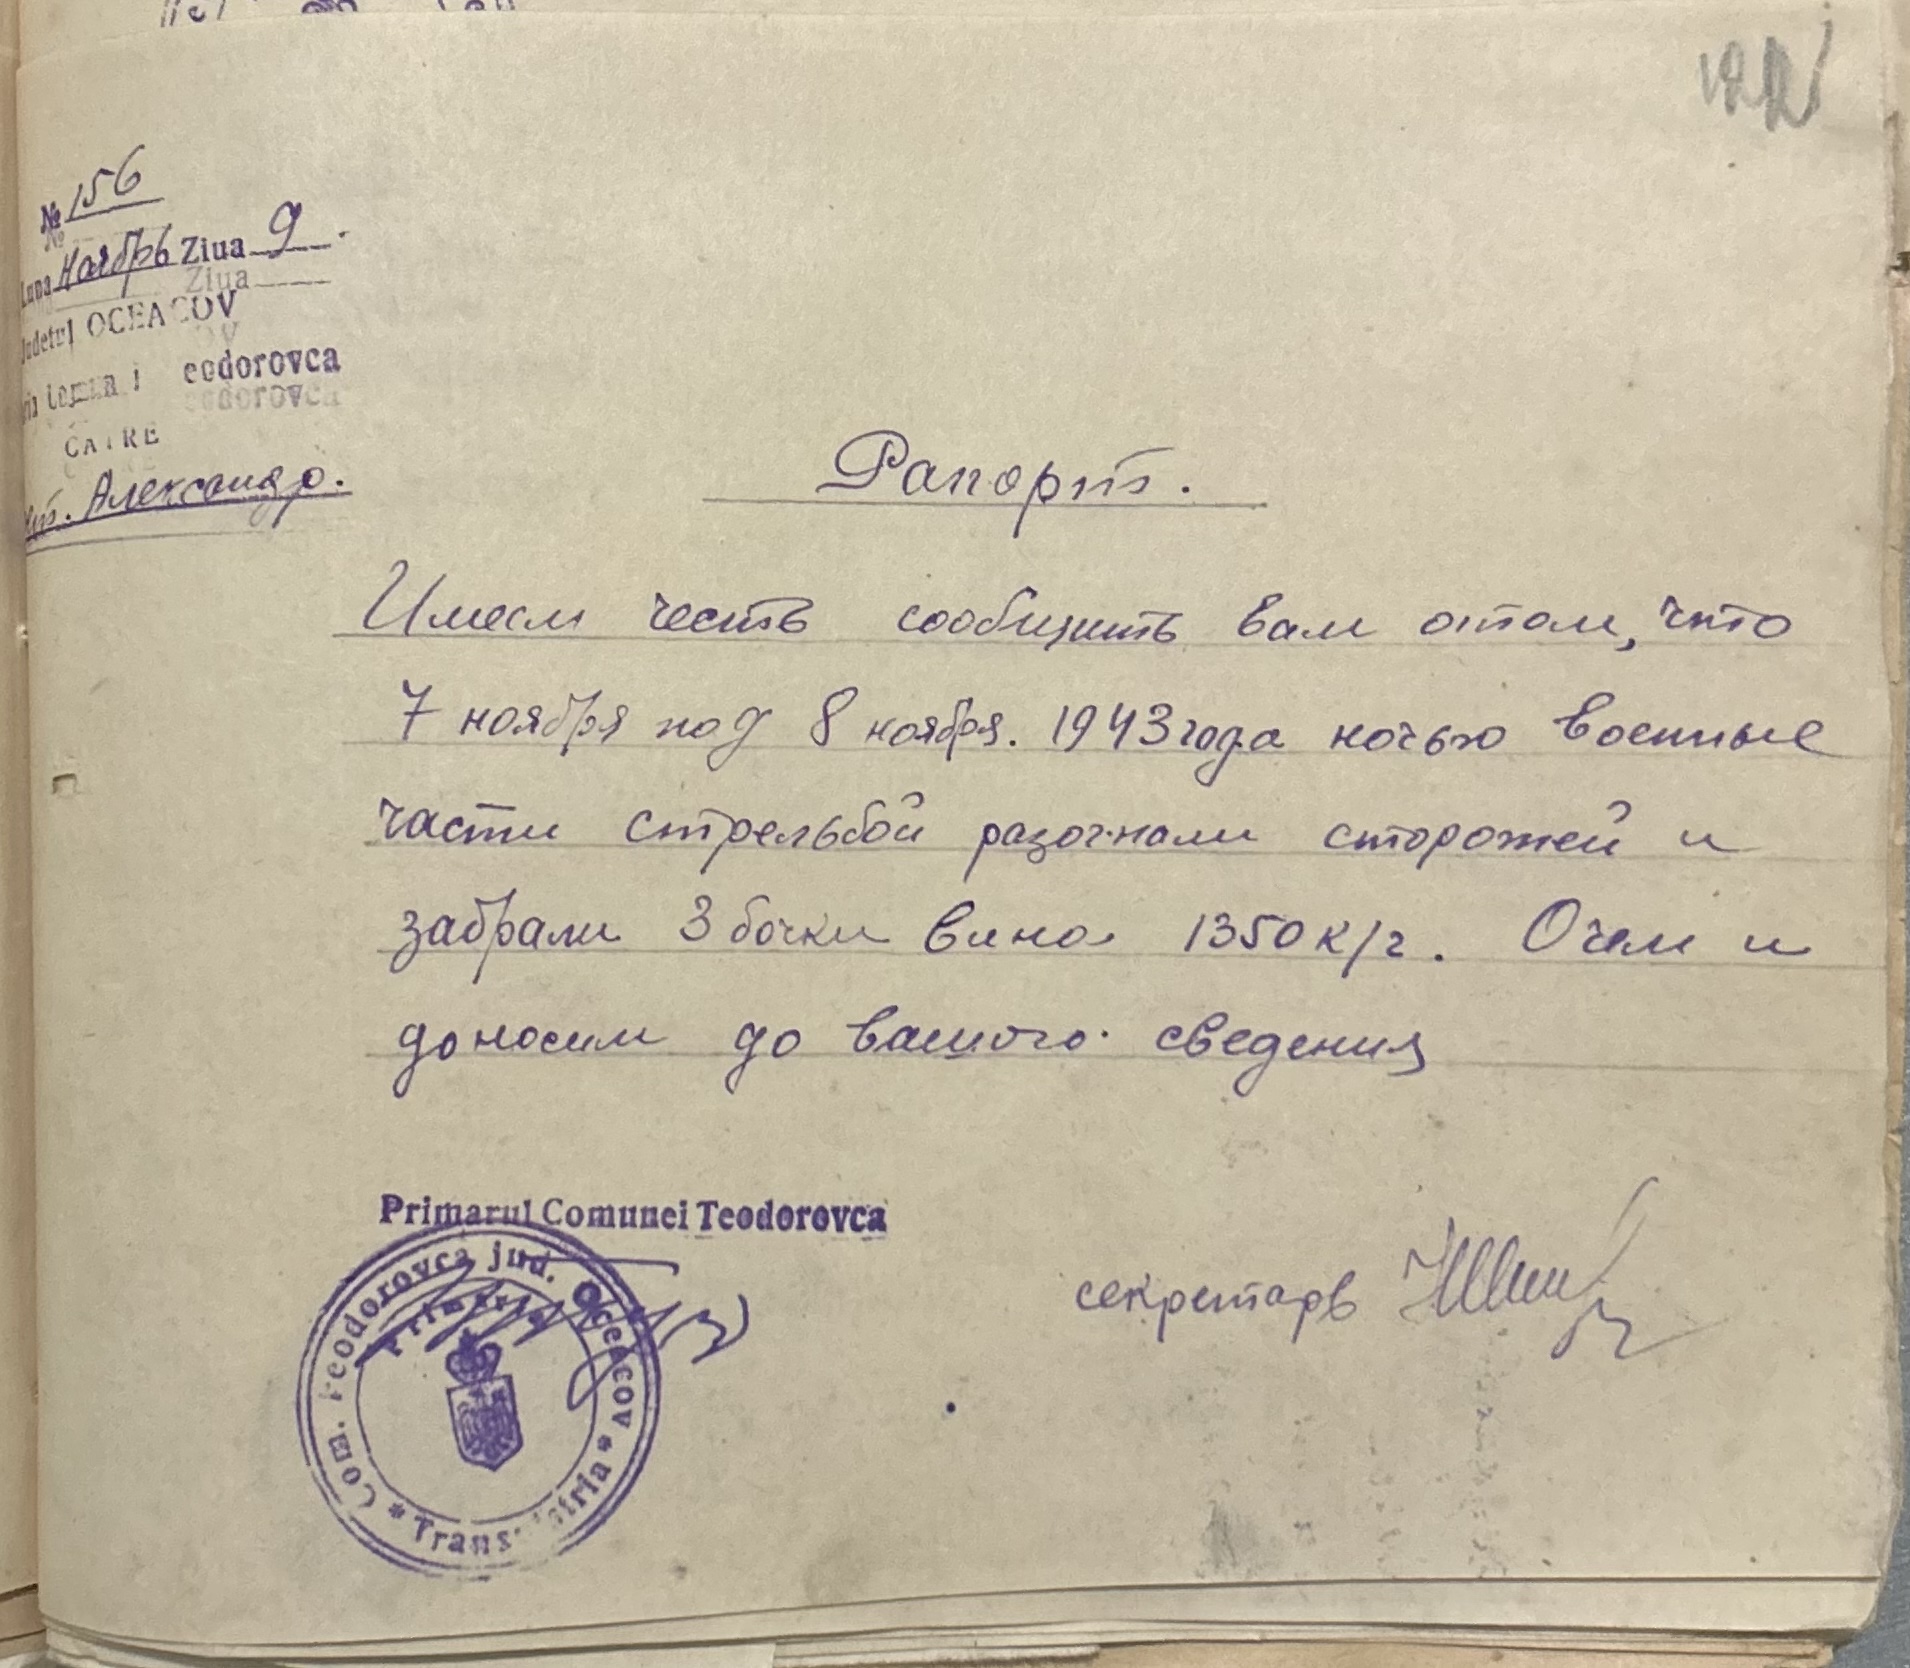 122
№ 156
Luna Наябрь Ziua 9.
Judetul OCEACOV
eodorovca
CATRE
Александр.
Рапорт.
Имеем честь сообщить вам отом, что
7 ноября под 8 ноября. 1943 года ночью военные
части стрельбой разогнали сторожей и
забрали 3 бочки вина 1350 к/г. Очем и
доносим до вашого сведения
Primarul Comunei Teodorovca
секретарь
Com. Teodorovca jud. Oceacov * Transnistria *
Primaria